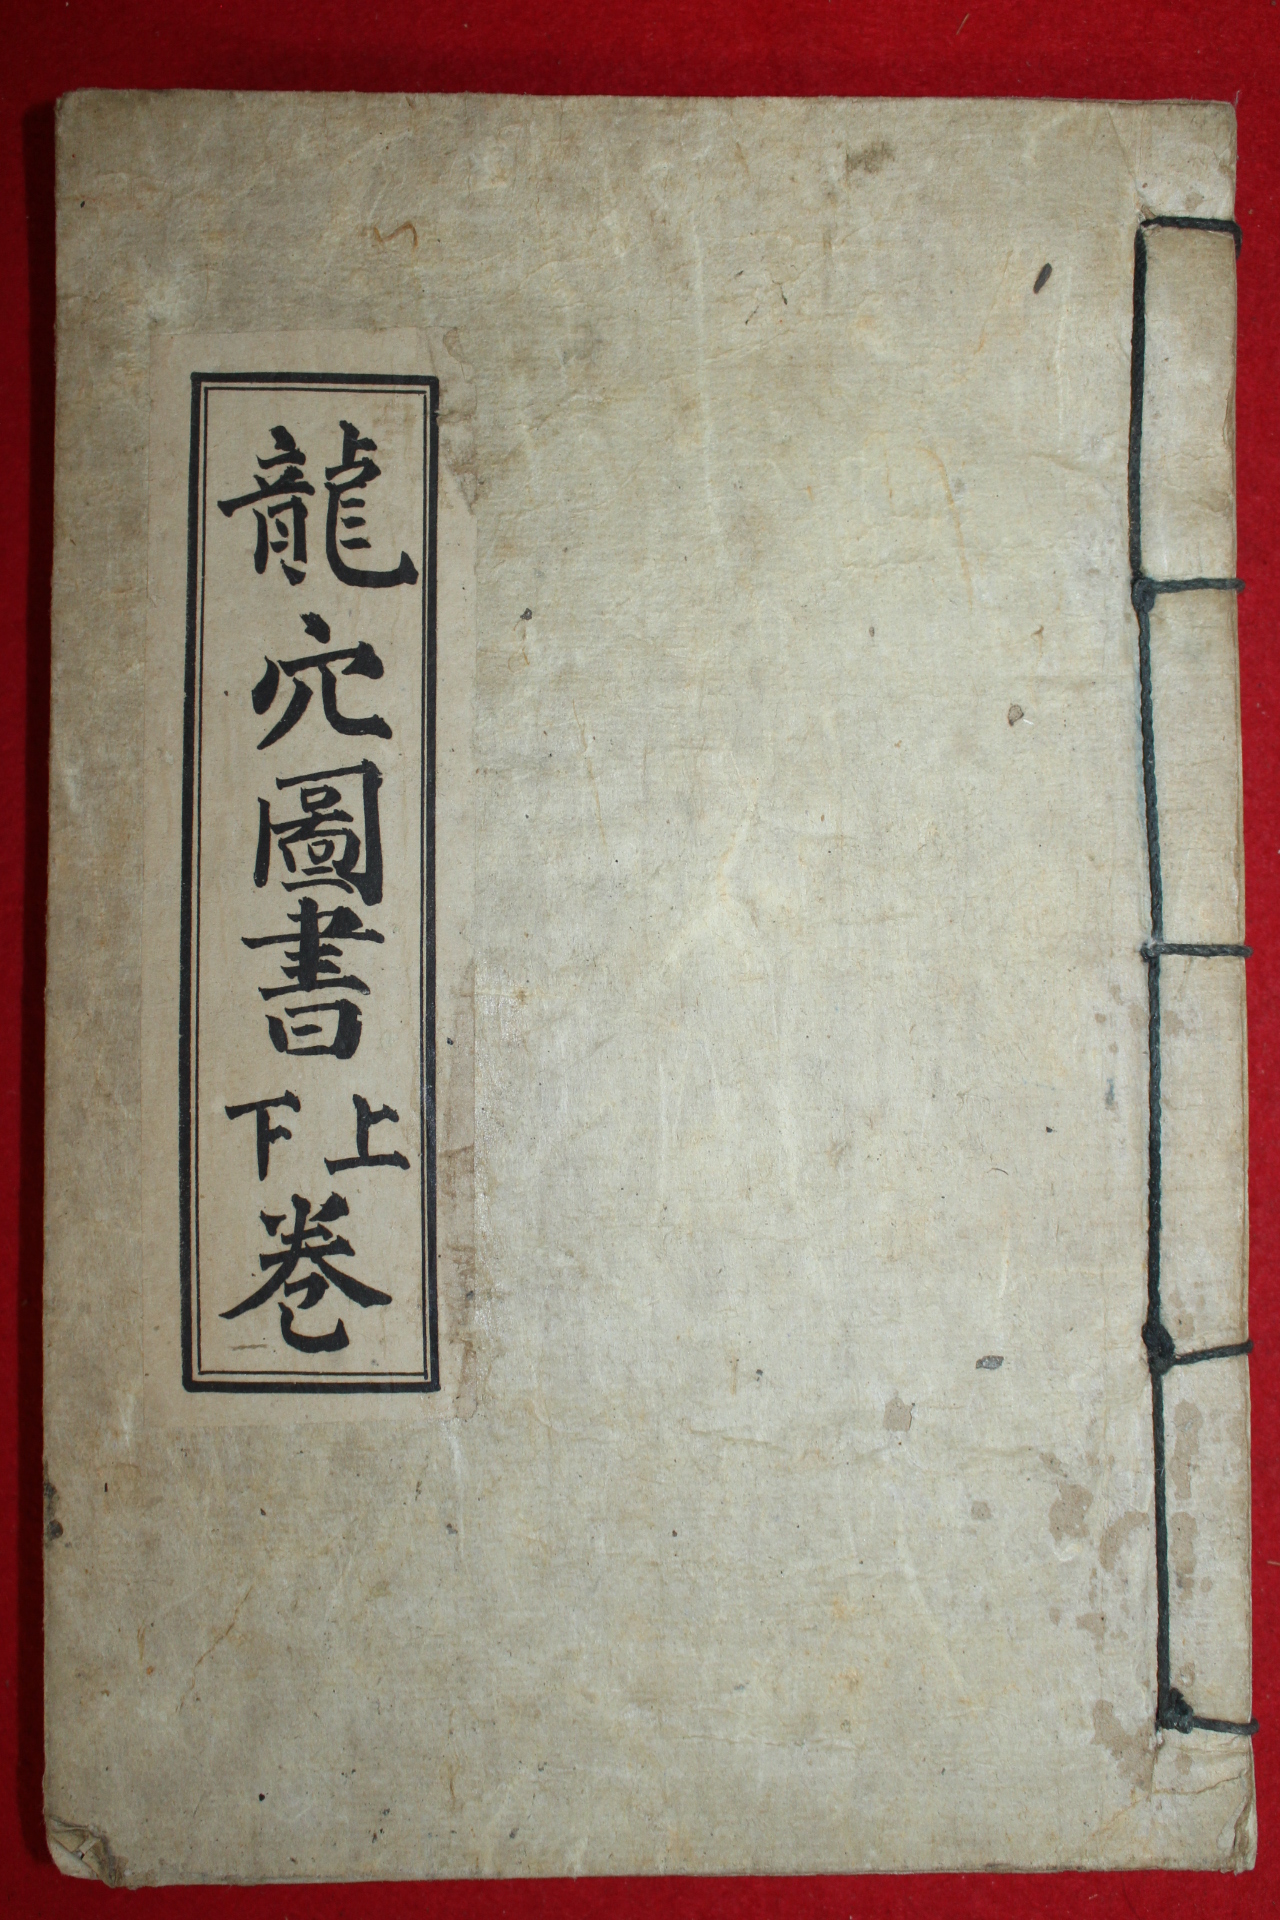 龍穴圖書上下卷